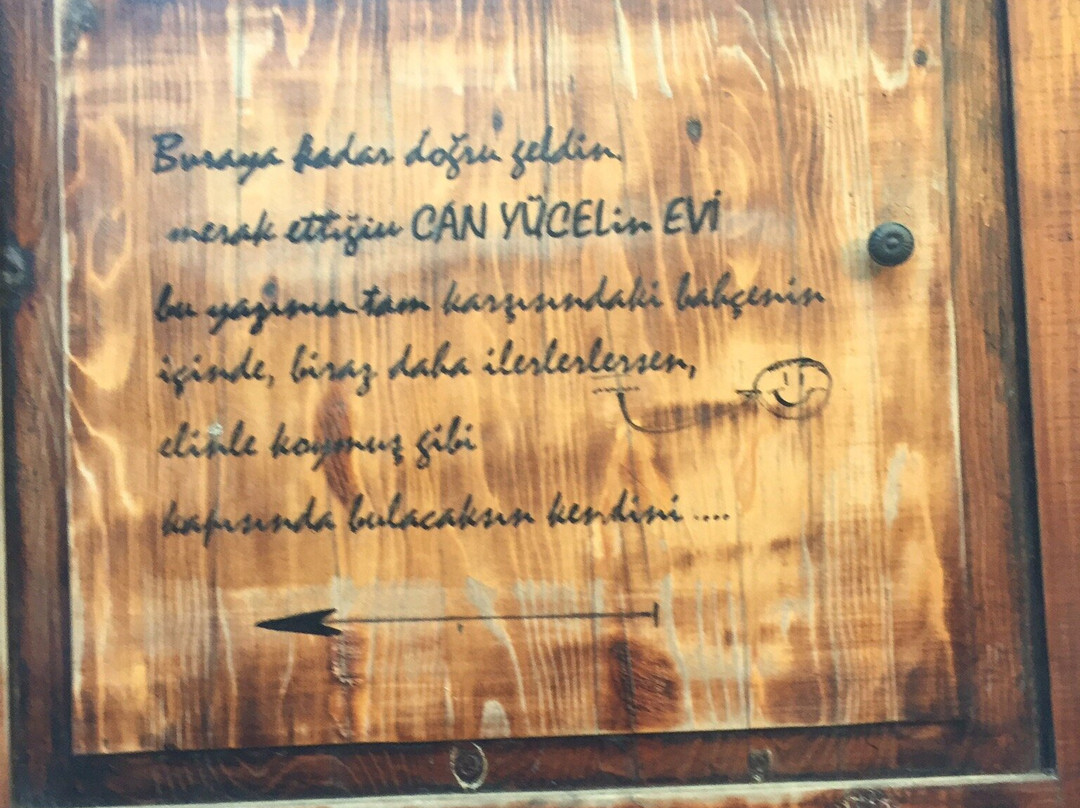 Buraya kadar doğru geldin.
merak ettiğin CAN YÜCELin EVİ
bu yazının tam karşısındaki bahçenin
içinde, biraz daha ilerlerlersen,
elinle koymuş gibi
kapısında bulacaksın kendini ....